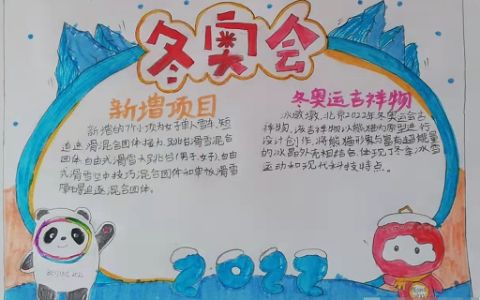 冬奥会
新增项目
新增的7个小项为女子单人雪车、短
道速滑混合团体接力、跳台滑雪混合
团体、自由式滑雪大跳台(男子、女子)、自由
式滑雪空中技巧混合团体和单板滑雪
障碍追逐混合团体。
冬奥运吉祥物
冰墩墩,北京2022年冬奥运会吉
祥物。该吉祥物以熊猫为原型进行
设计创作,将熊猫形象与富有超能量
的冰晶外壳相结合,体现了冬季冰雪
运动和现代科技特点。
BEIJING 2022
2022